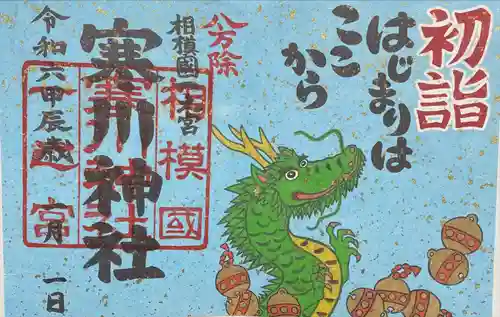 初詣
はじまりは
ここ
から
八方除
相模國一之宮
寒川神社
相模國
壱之宮
令和六甲辰歳
一月
一日